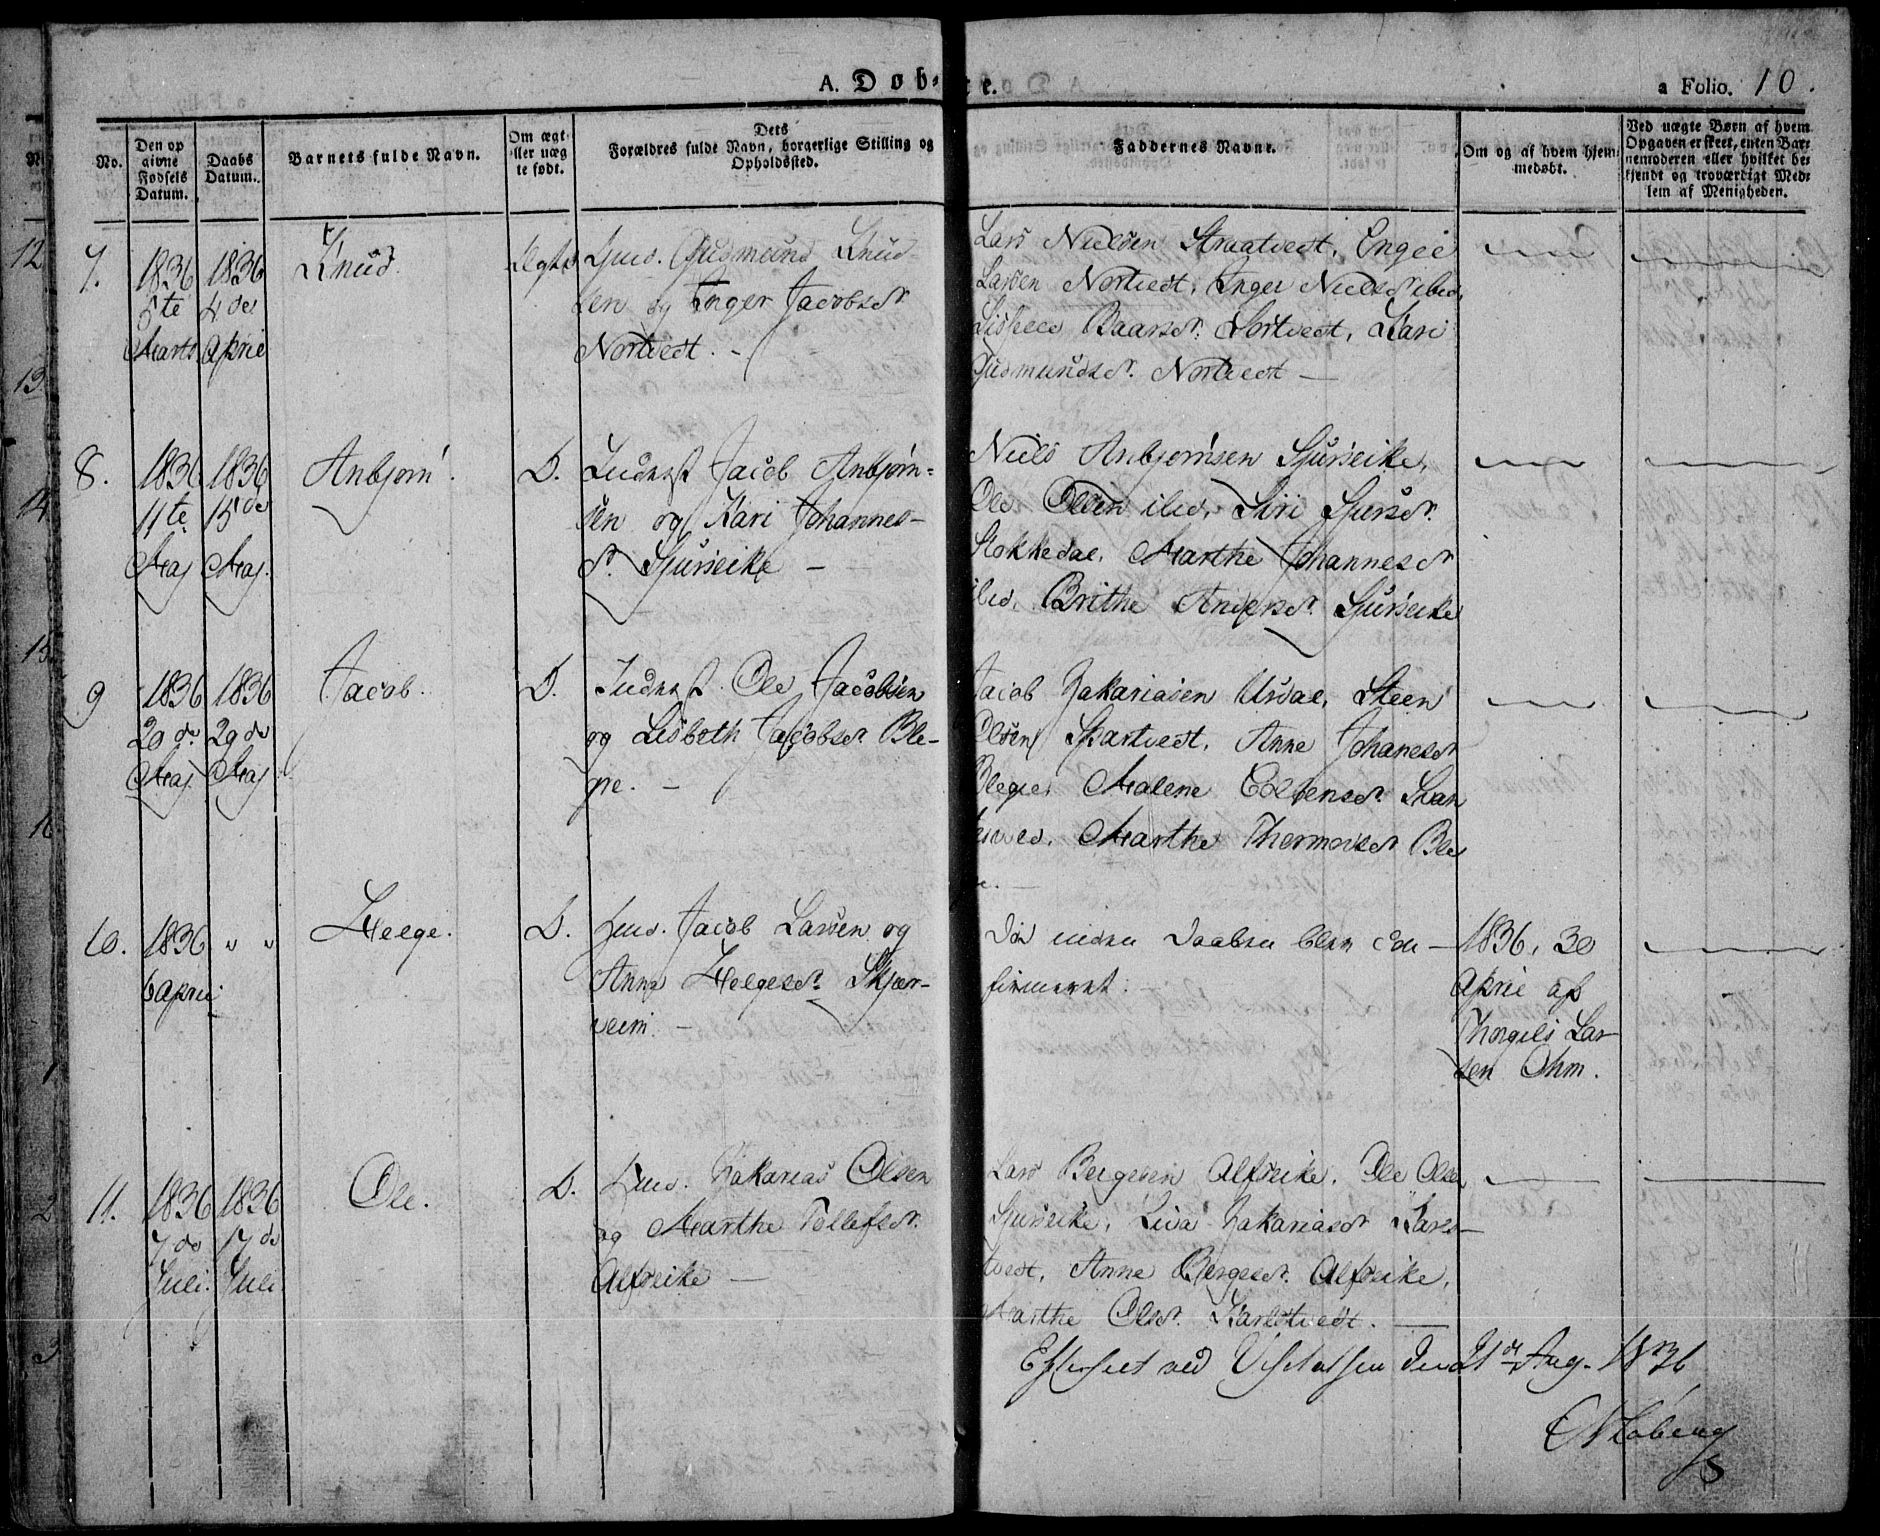 A. Døbte.
a Folio. 10.
No.
Den opgivne Fødsels Datum.
Daabs Datum.
Barnets fulde Navn.
Om ægte eller uægte født.
Dets Forældres fulde Navn, borgerlige Stilling og Opholdssted.
Faddernes Navne.
Om og af hvem hjemmedøbt.
Ved uægte Børn af hvem Opgaven er skeet, enten Barnemoderen eller hvilket bekjendt og troværdigt Medlem af Menigheden.
7.
1836
5te
Marts
1836
4de
April
Knud.
Ægte
Huus. Gudmund Knud-
sen og Inger Jacobsdr
Nortvedt. -
Lars Nielsen Straatvedt, Engel
Larsen Nortvedt, Inger Nielsdr ibid,
Baarsdr. Sortvedt, Kari
Gudmundsdr. Nortvedt —
8.
1836
11te
Maj
1836
15de
Maj.
Anbjørn.
D.
Inderst Jacob Anbjørn-
sen og Kari Johannes-
dr. Sjurseike —
Niels Anbjørnsen Sjurseike,
Ole Olsen ibid, Siri Sjursdr.
Stokkedal, Marthe Johannesdr
ibid, Brithe Andersdr. Sjurseike
9
1836
20de
Maj
1836
29de
Maj
Jacob.
D.
Inderst. Ole Jacobsen
og Lisbeth Jacobsdr. Ble-
gie. —
Jacob Zakariasen Ursdal, Steen
Olsen Skartvedt, Anne Johanesdr
Blegie, Malene Edvensdr. Skar
tved, Marthe Thormodsdr Ble
ge. —
10.
1836
6 April
" "
Helge.
D.
Huus. Jacob Larsen og
Anne Helgesdr. Skjær-
veim. —
Død inden Daaben blev con-
firmeret.
1836, 30
April af
Thorgils Lar-
sen Ohm.
11.
1836
7de
Juli.
1836
17de
Juli.
Ole.
D.
Huus. Zakarias Olsen
og Marthe Tollefsdr.
Alfseike —
Lars Bergesen Alfseike, Ole Olsen
Sjurseike, Liva Zakariasdr Karls-
tvedt, Anne Bergesdr. Alfseike,
Marthe Olsdr. Karlstvedt. —
Efterseet ved Visitatsen den 21de Aug. 1836
12
13
14
15
16
1
2
3